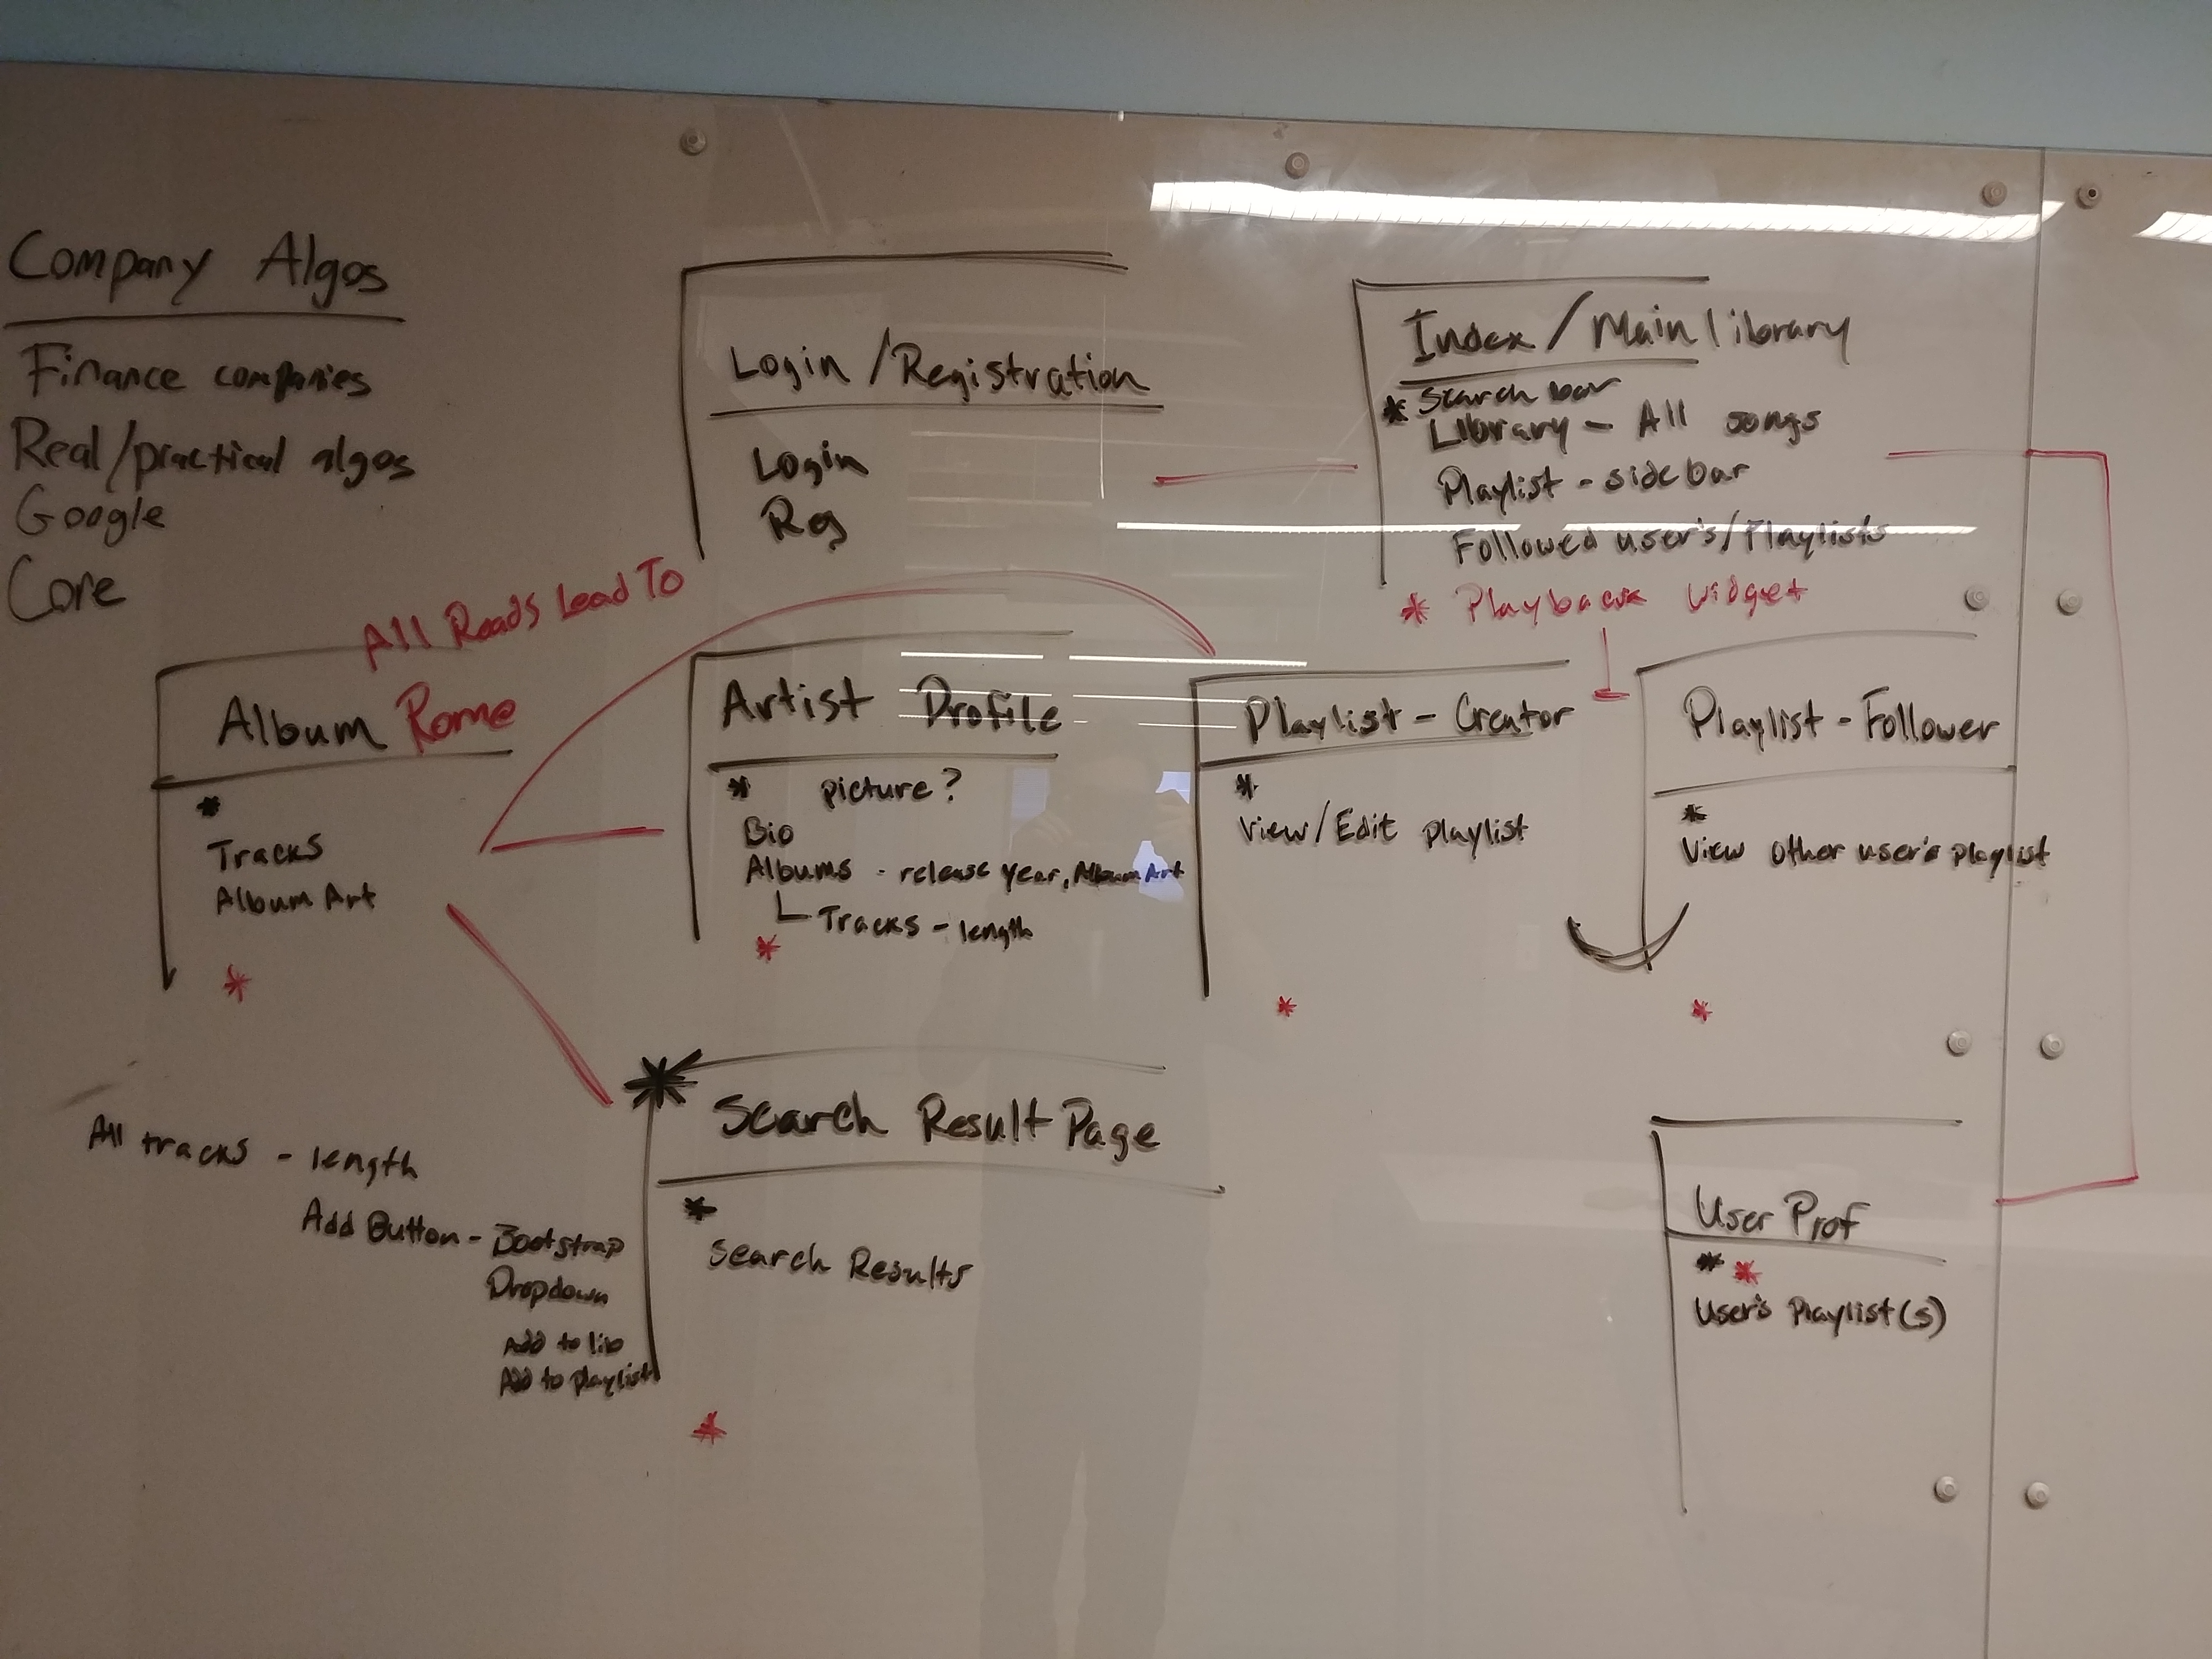 Company Algos
Finance companies
Real/practical algos
Google
Core
Login/Registration
Login
Reg
Index/Main library
* Search bar
Library - All songs
Playlist - side bar
Followed user's/Playlists
* Playback widget
All Roads Lead To
Album Rome
*
Tracks
Album Art
*
Artist Profile
* picture?
Bio
Albums - release year, Album Art
Tracks - length
*
Playlist - Creator
*
View/Edit playlist
*
Playlist - Follower
*
View other user's playlist
*
All tracks - length
Add Button - Bootstrap
Dropdown
Add to lib
Add to playlist
Search Result Page
*
Search Results
*
User Prof
* *
User's Playlist(s)